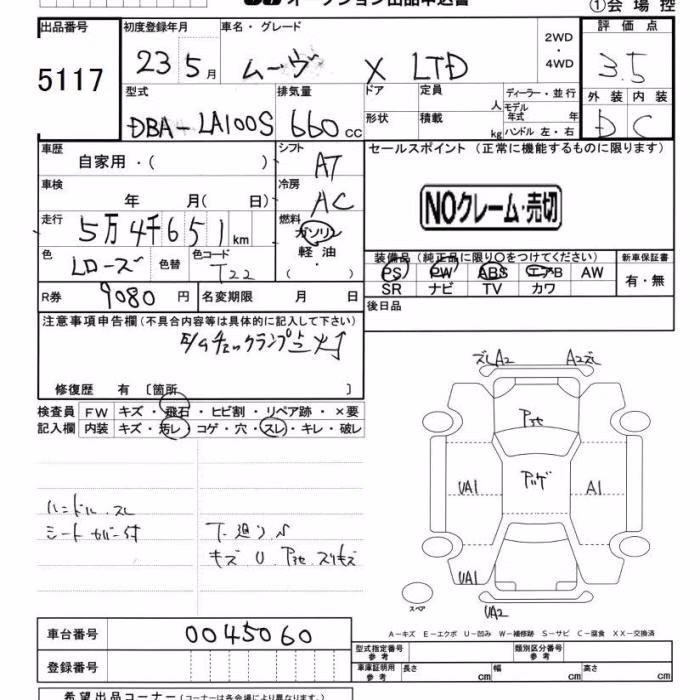 オークション出品申込書
①会場控
出品番号 初度登録年月 車名・グレード 2WD・4WD 評価点
5117 23 5月 ムーヴ X LTD 3.5
型式 排気量 ドア 定員 人 ディーラー・並行 外装 内装
DBA-LA100S 660cc 形状 積載 kg モデル年式 年 ハンドル 左・右 D C
車歴 自家用・( ) シフト AT セールスポイント (正常に機能するものに限ります)
車検 年 月(日) 冷房 AC
NOクレーム・売切
走行 5万4千651km 燃料 ガソリン 軽油 ( ・ )
色 Lローズ 色替 色コード T22
装備品 (純正品に限り〇をつけてください) 新車保証書
PS PW ABS エアB AW 有・無
SR ナビ TV カワ
R券 9080円 名変期限 月 日 後日品
注意事項申告欄 (不具合内容等は具体的に記入して下さい)
E/Gチェックランプ点灯
修復歴 有 〔箇所 〕
検査員 FW キズ・飛石・ヒビ割・リペア跡・×要
記入欄 内装 キズ・汚レ・コゲ・穴・スレ・キレ・破レ
ハンドル スレ
シートカバー付
下廻りS
キズ U アセ スリキズ
ズレA2 A2ズレ
アセ
アゲ
UA1 A1
UA1
UA2
スペア
A-キズ E-エクボ U-凹み W-補修跡 S-サビ C-腐食 XX-交換済
車台番号 0045060
登録番号
型式指定番号 参考 類別区分番号 参考
車庫証明用 参考 長さ cm 幅 cm 高さ cm
希望出品コーナー (コーナーは各会場により異なります。)